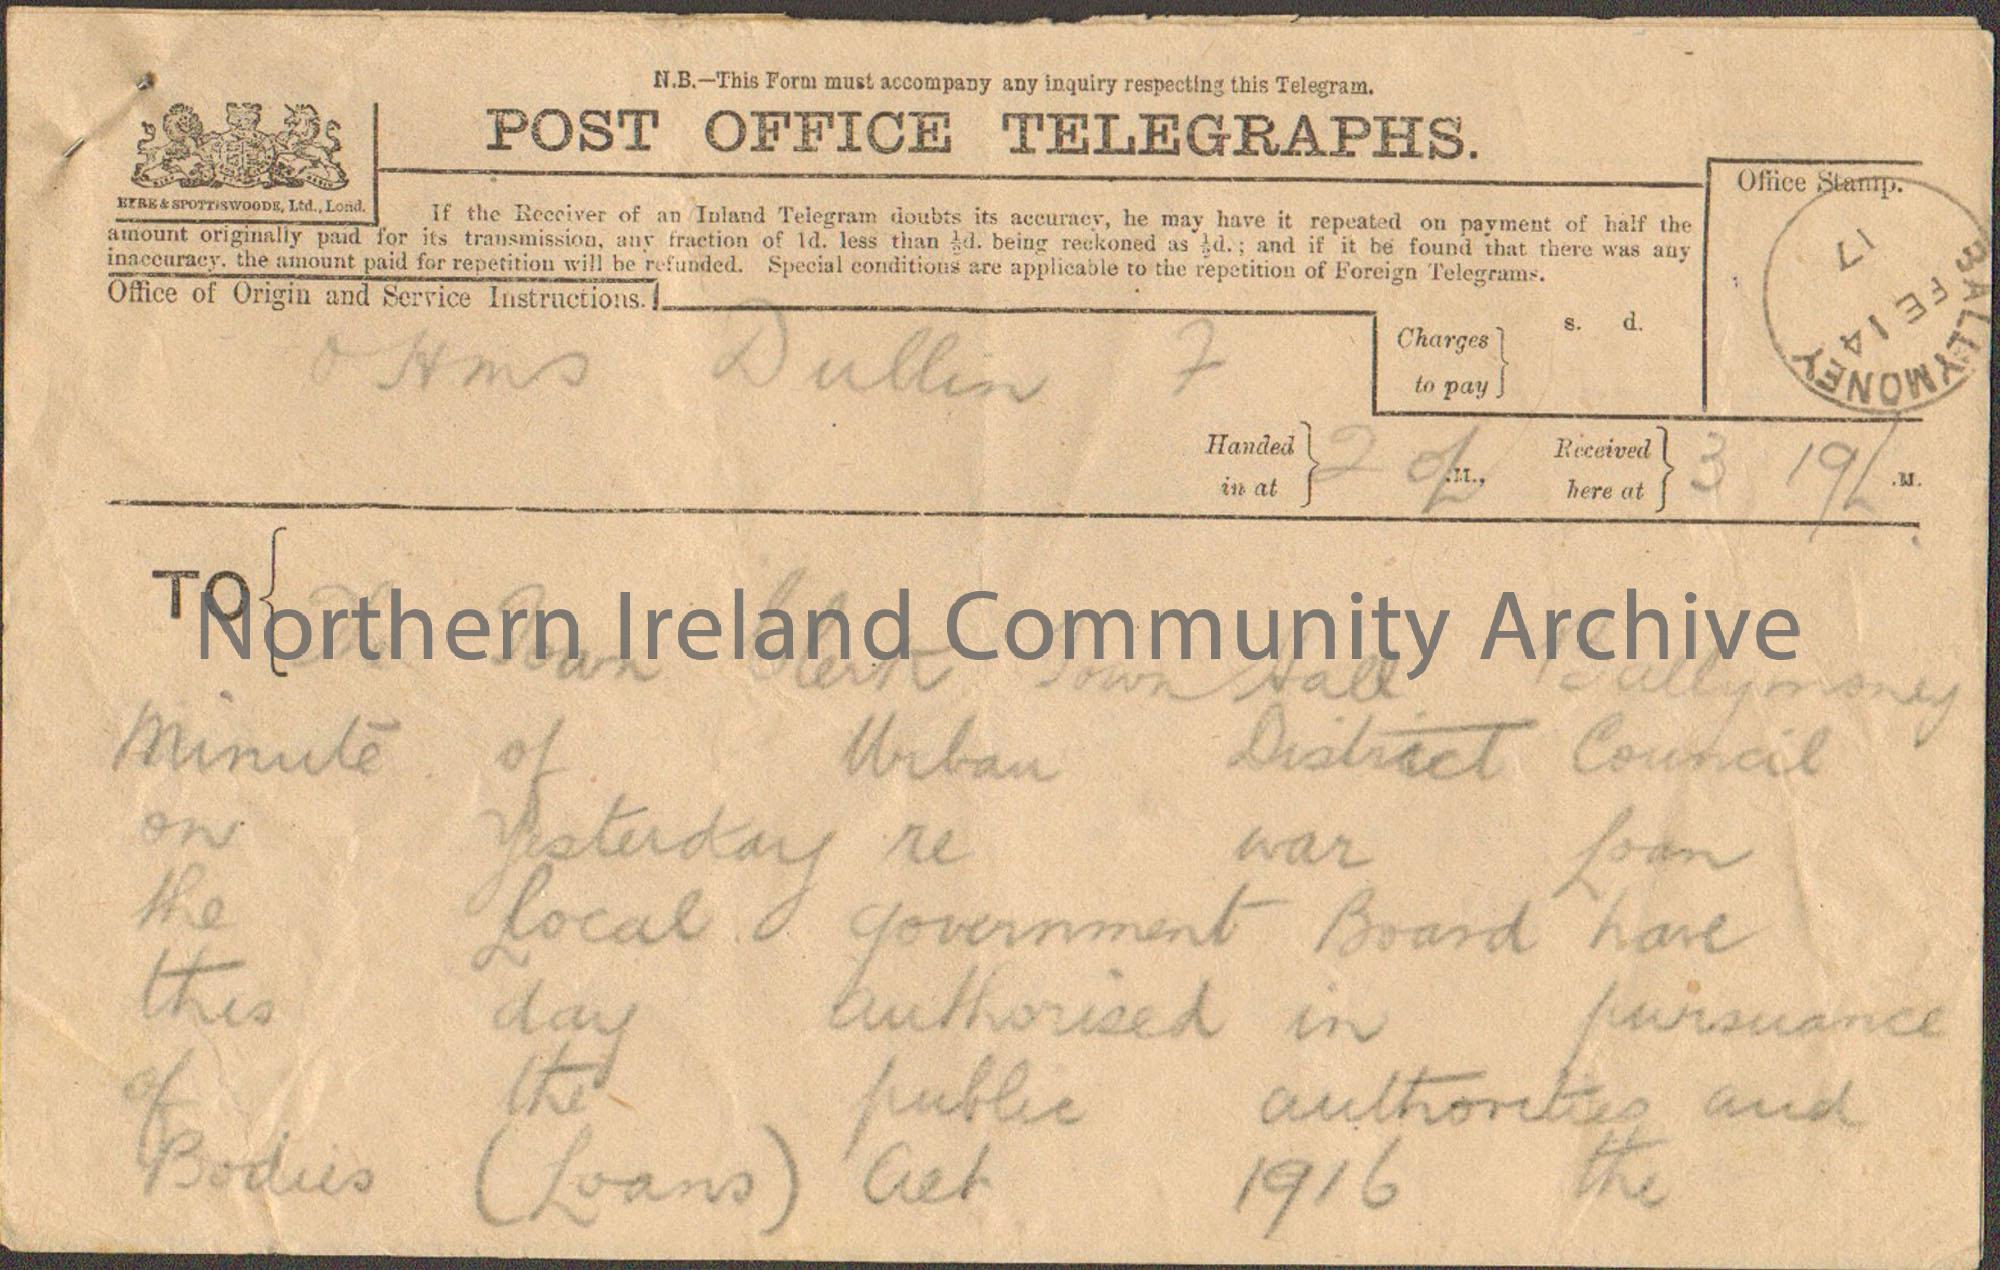 N.B.—This Form must accompany any inquiry respecting this Telegram.
POST OFFICE TELEGRAPHS.
EYRE & SPOTTISWOODE, Ltd., Lond.
If the Receiver of an Inland Telegram doubts its accuracy, he may have it repeated on payment of half the
amount originally paid for its transmission, any fraction of 1d. less than ½d. being reckoned as ½d.; and if it be found that there was any
inaccuracy, the amount paid for repetition will be refunded. Special conditions are applicable to the repetition of Foreign Telegrams.
Office of Origin and Service Instructions.
Office Stamp.
BALLYMONEY
FE 14
17
OHMS Dublin 7
Charges to pay
s. d.
Handed in at 2 .M., Received here at 3 19 .M.
TO
The Town Clerk Town Hall Ballymoney
Northern Ireland Community Archive
Minute of Urban District Council
on Yesterday re war Loan
the Local government Board have
this day authorised in pursuance
of the public authorities and
Bodies (Loans) Act 1916 the